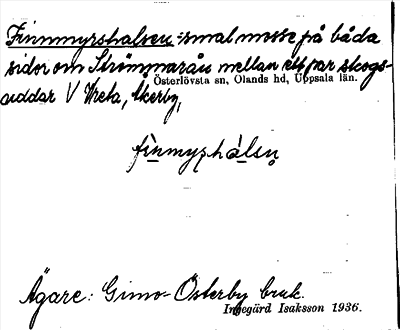 Finnmyrshalsen = smal mosse på båda
sidor om Strömmaråu mellan ett par skogs-
Österlövsta sn, Olands hd, Uppsala län.
uddar V Vreta, Åkerby,
fìnmyʂhàlsn̥
Ägare: Gimo-Österby bruk.
Ingegärd Isaksson 1936.